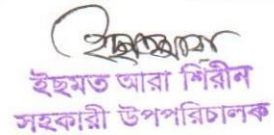 ইছমত আরা শিরীন
সহকারী উপপরিচালক